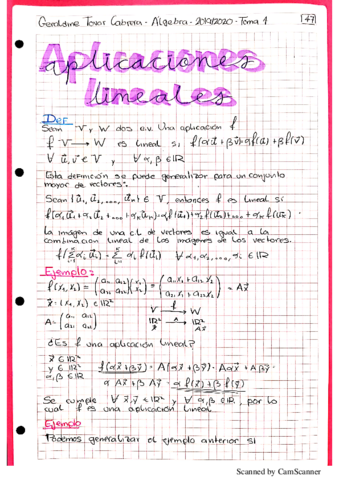 Geraldine Tovar Cabrera - Álgebra - 2019/2020 - Tema 4
aplicaciones
lineales
Def
Sean V y W dos e.v. Una aplicación f
f: V → W es lineal si f(αu⃗ + βv⃗) = αf(u⃗) + βf(v⃗)
∀ u⃗, v⃗ ∈ V y ∀ α, β ∈ ℝ
Esta definición se puede generalizar para un conjunto
mayor de vectores.
Sean {u⃗₁, u⃗₂, ..., u⃗ₙ} ∈ V, entonces f es lineal si
f(α₁u⃗₁ + α₂u⃗₂ + ... + αₙu⃗ₙ) = α₁f(u⃗₁) + α₂f(u⃗₂) + ... + αₙf(u⃗ₙ)
La imagen de una c.l. de vectores es igual a la
combinación lineal de las imágenes de los vectores.
Ejemplo:
f(x₁, x₂) = = Ax⃗
x⃗ = (x₁, x₂) ∈ ℝ²
V f→ W
A =
ℝ² A→ ℝ²
¿Es f una aplicación lineal?
x⃗ ∈ ℝ²
y⃗ ∈ ℝ²
α, β ∈ ℝ
f(αx⃗ + βy⃗) = A(αx⃗ + βy⃗) = Aαx⃗ + Aβy⃗ =
α Ax⃗ + β Ay⃗ = α f(x⃗) + β f(y⃗)
Se cumple ∀ x⃗, y⃗ ∈ ℝ² y ∀ α, β ∈ ℝ, por lo
cual f es una aplicación lineal
Ejemplo
Podemos generalizar el ejemplo anterior si
Scanned by CamScanner